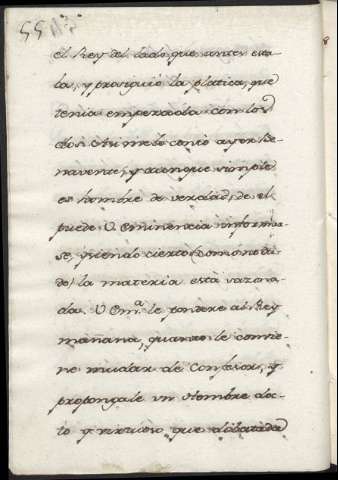 el Rey del lado, que antes esta-
ba, y prosiguió la platica, que
tenia empezada con los
dos. Asi me lo contò ayer Be-
navente, y aunque simple
es hombre de verdad, de el
puede V. Eminencia informar-
se, y siendo cierto (como no du-
do) la materia està sazona-
da. V. Em.ª le pondere al Rey
mañana, quanto le convie-
ne mudar de Confesor, y
propongale un Hombre doc-
to y virtuoso que